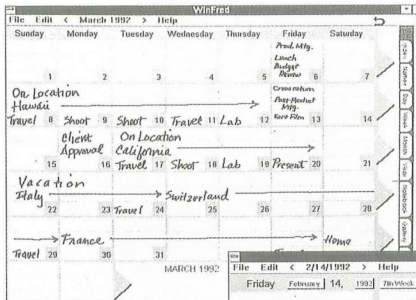 WinFred
File Edit < March 1992 > Help
Sunday Monday Tuesday Wednesday Thursday Friday Saturday
Prod. Mtg.
Lunch
Budget
Review
1 2 3 4 5 6 7
On Location
Hawaii
Crew return
Post-Product
Mtg.
Travel 8 Shoot 9 Shoot 10 Travel 11 Lab 12 Edit Film 13 14
Client On Location
Approval California
15 16 Travel 17 Shoot 18 Lab 19 Present 20 21
Vacation
Italy Switzerland
22 23 Travel 24 25 26 27 28
France Home
Travel 29 30 31
MARCH 1992
File Edit < 2/14/1992 > Help
Friday February 14, 1992 7th Week